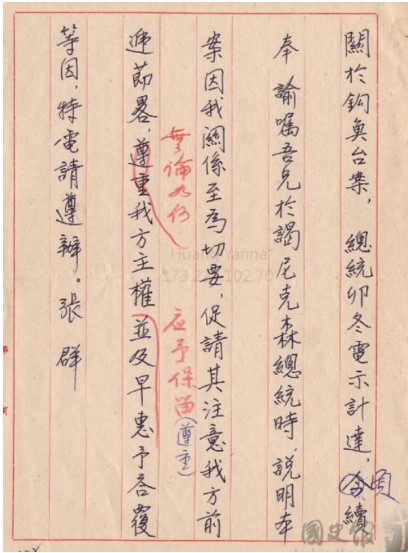 關於釣魚台案，總統卯冬電示計達，今續
奉諭囑吾兄於謁尼克森總統時，說明本
案因我關係至為切要，促請其注意我方前
無論如何 应予保留（尊重）
遞節畧，尊重我方主權並及早惠予答覆
等因，特電請遵辦。張群
Huang Yanna
國史館